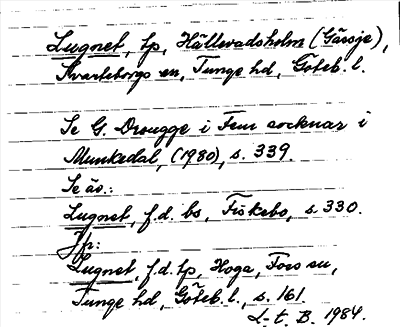 Lugnet, tp, Hällevadsholm (Gässje),
Svarteborgs sn, Tunge hd, Göteb. l.
Se G. Drougge i Fem socknar i
Munkedal, (1980), s. 339.
Se äv.:
Lugnet, f.d. bs, Fiskebo, s. 330.
Jfr:
Lugnet, f.d. tp, Hoga, Foss sn,
Tunge hd, Göteb. l., s. 161.
L-t. B. 1984.